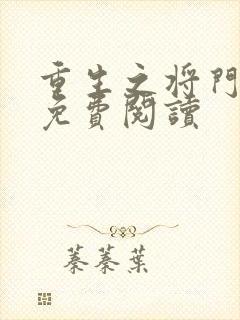 重生之将門
免費閱讀
蓁蓁葉